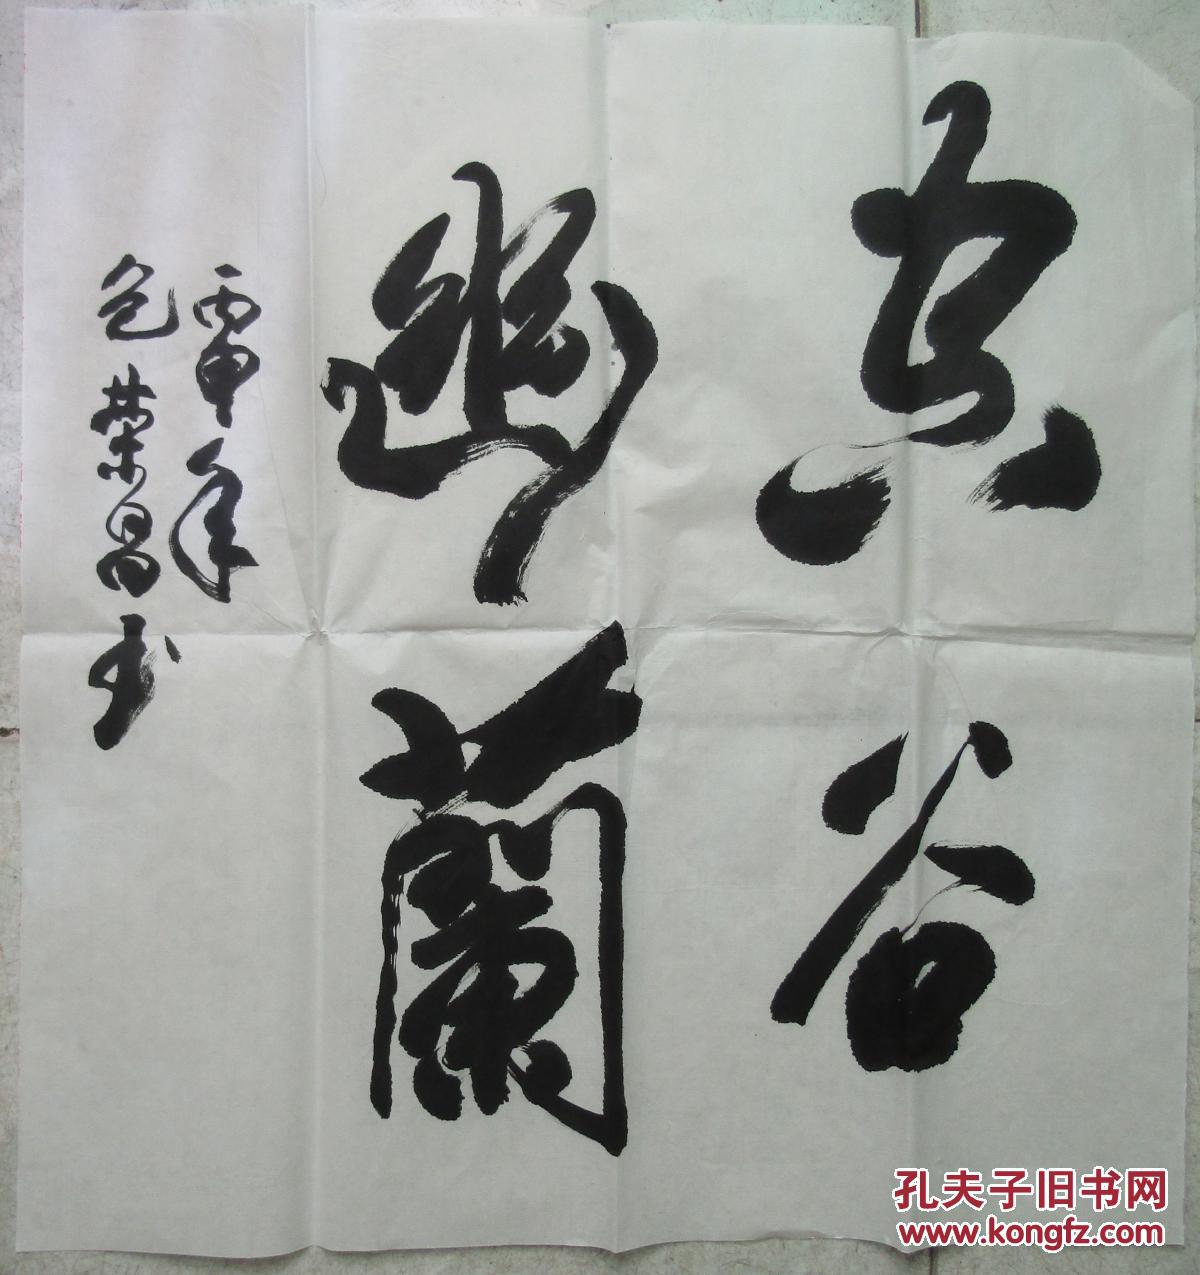 空谷
幽蘭
丙申年
包荣昌书
孔夫子旧书网
www.kongfz.com